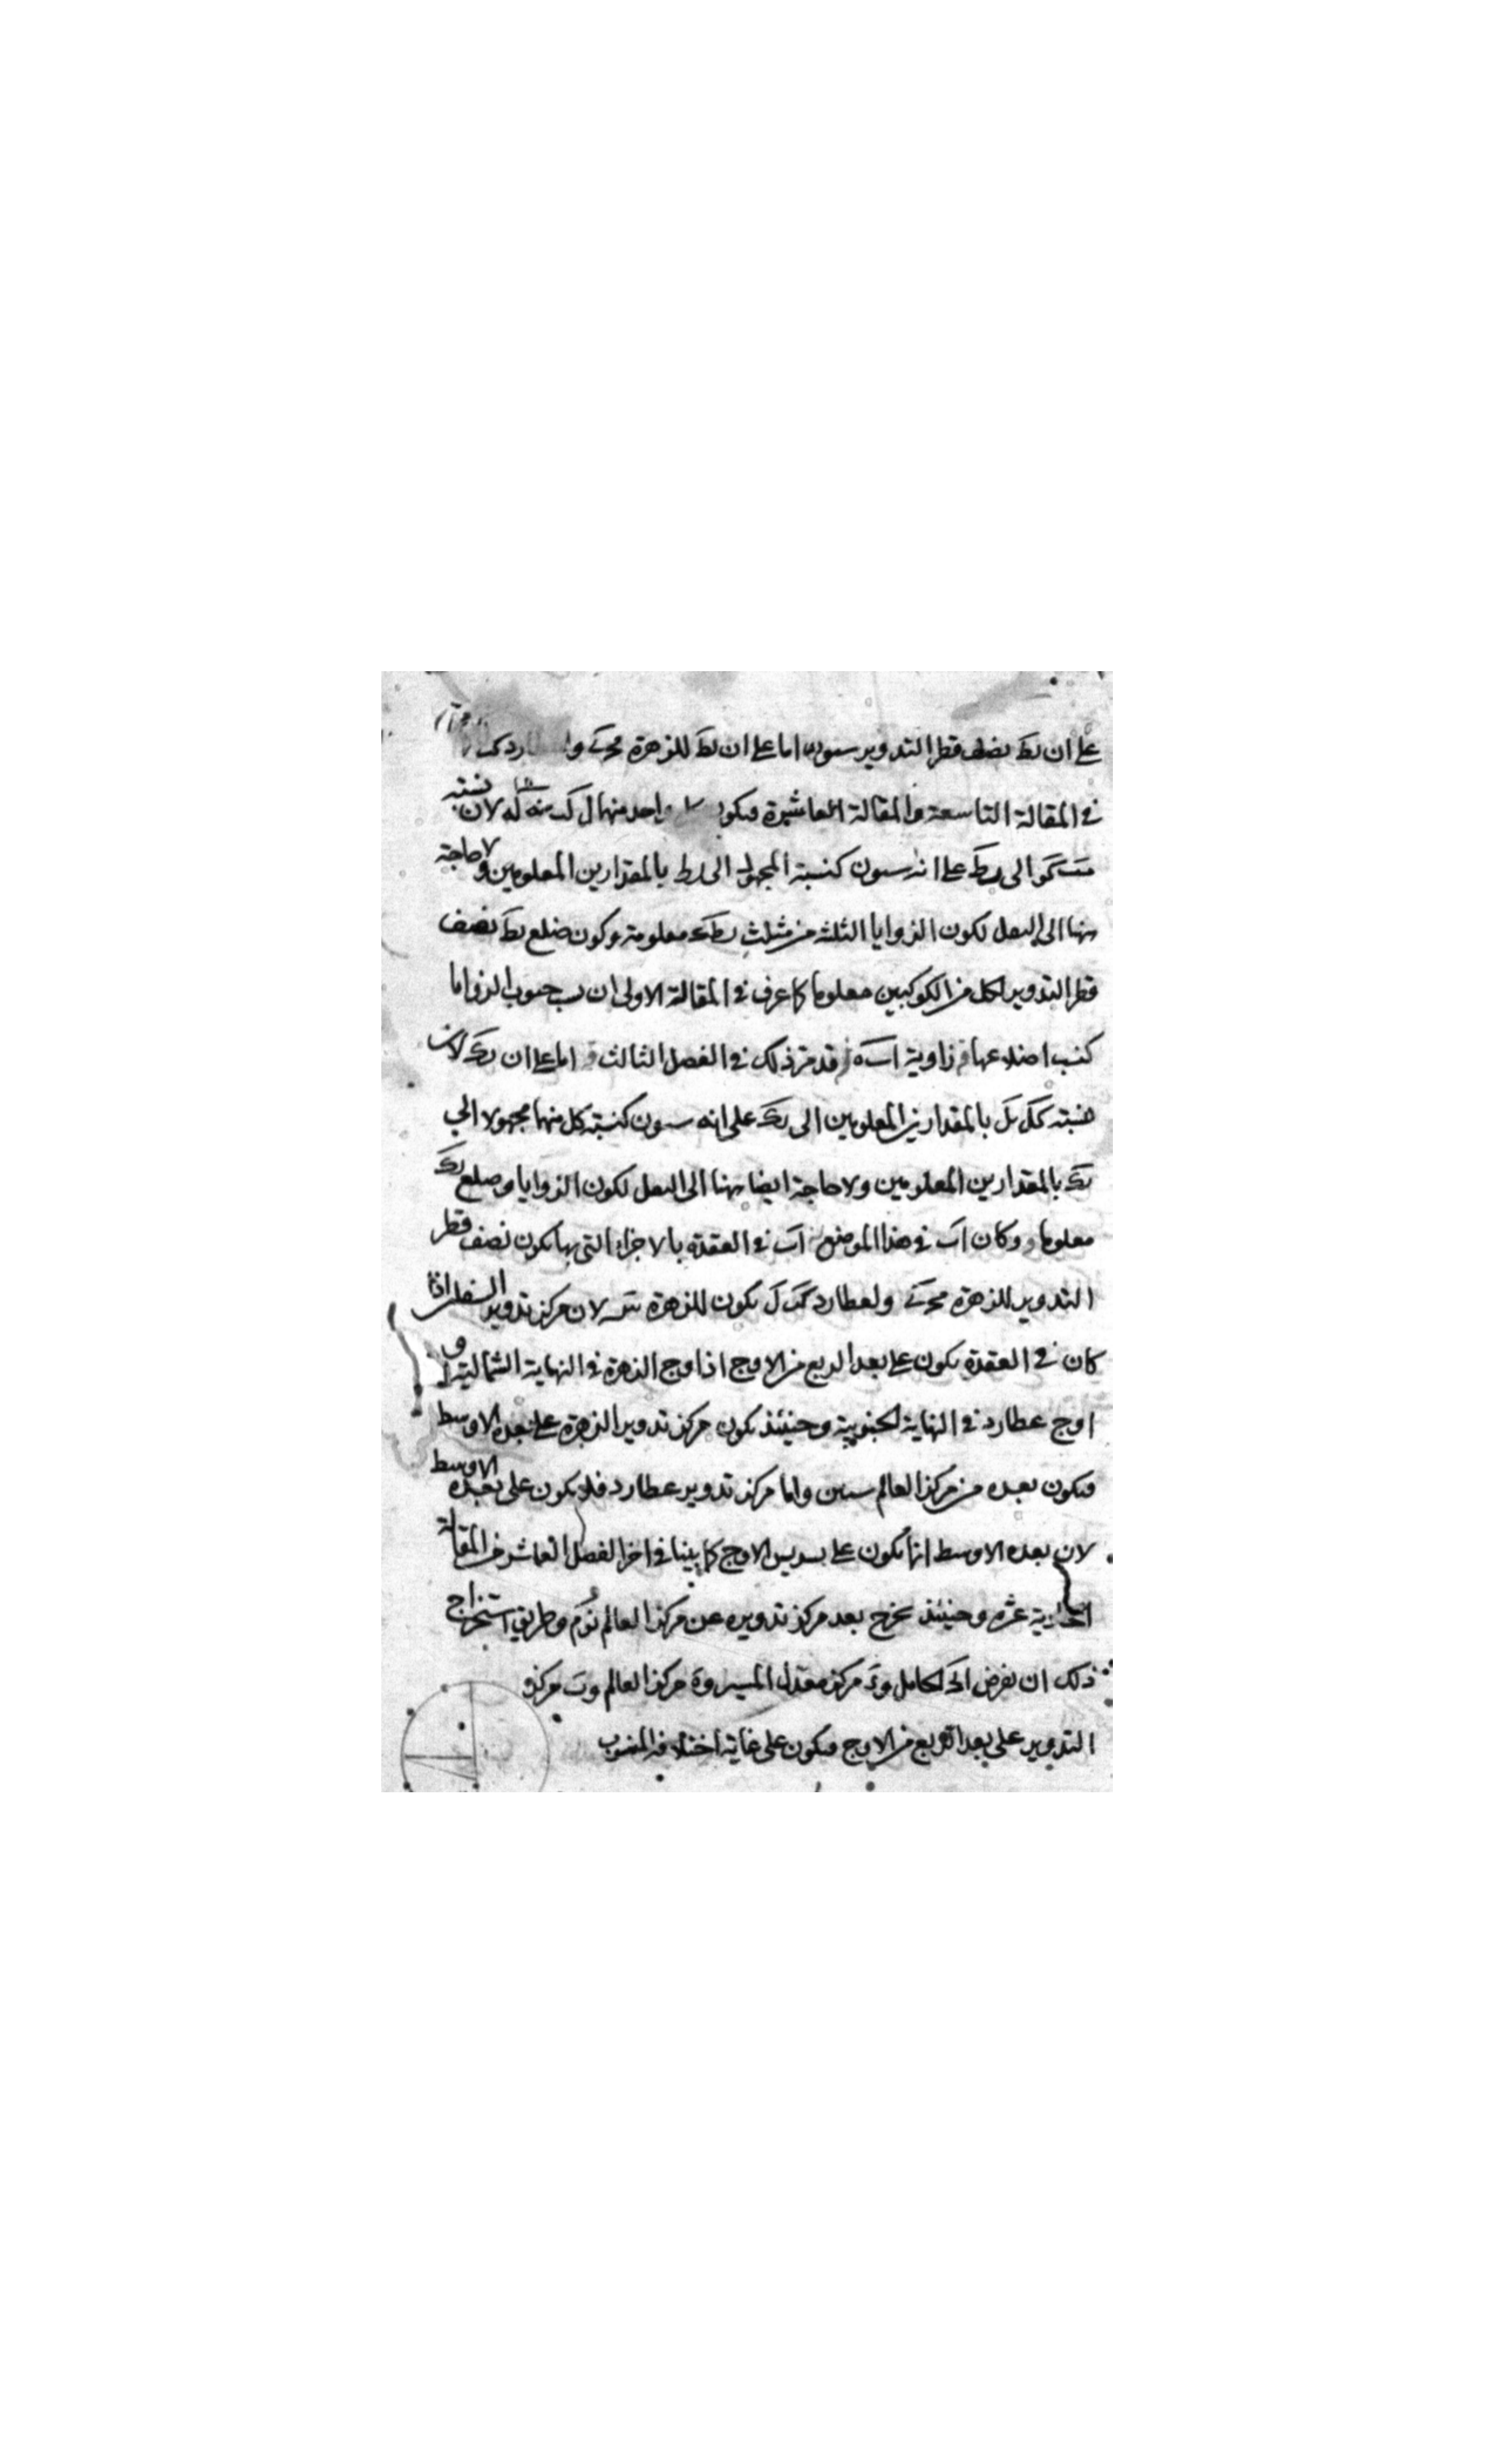 على ان بط نصف قطر التدوير ستون اما على ان بط للزهرة مج ى
في المقالة التاسعة والمقالة العاشرة فيكون واحد منهما ل كب له لان نسبته
الى بط على انه ستون كنسبة المجهول الى بط بالمقدارين المعلومين ولا حاجة
ههنا الى النقل لكون الزوايا الثلثة من مثلث بطك معلومة وكون ضلع بط نصف
قطر التدوير لكل من الكوكبين معلوما كما عرف في المقالة الاولى ان نسب جيوب الزوايا
كنسب اضلاعها زاوية قد مر ذلك في الفصل الثالث اما على ان بك لان
نسبته كل بالمقدارين المعلومين الى بك على انه ستون كنسبة كل منهما مجهولا الى
بك بالمقدارين المعلومين ولا حاجة ايضا ههنا الى النقل لكون الزوايا وضلع بك
معلوما وكان اب في هذا الموضع اب في العقدة بالاجزاء التي بها يكون نصف قطر
التدوير للزهرة مج ى ولعطارد كب ل يكون للزهرة س لان مركز تدوير السفلى اذا
كان في العقدة يكون على بعد الربع من الاوج اذا وج الزهرة في النهاية الشمالية و
اوج عطارد في النهاية الجنوبية وحينئذ يكون مركز تدوير الزهرة على بعده الاوسط
فيكون بعده من مركز العالم ستين واما مركز تدوير عطارد فلا يكون على بعده الاوسط
لان بعده الاوسط انما يكون على تسديس الاوج كما بينا في اخر الفصل العاشر من المقالة
الحادية عشرة وحينئذ يخرج بعد مركز تدويره عن مركز العالم نو م وطريق استخراج
ذلك ان نفرض الحامل و مركز معدل المسير و مركز العالم وب مركز
التدوير على بعد الربع من الاوج فيكون على غاية اختلافه المنسوب